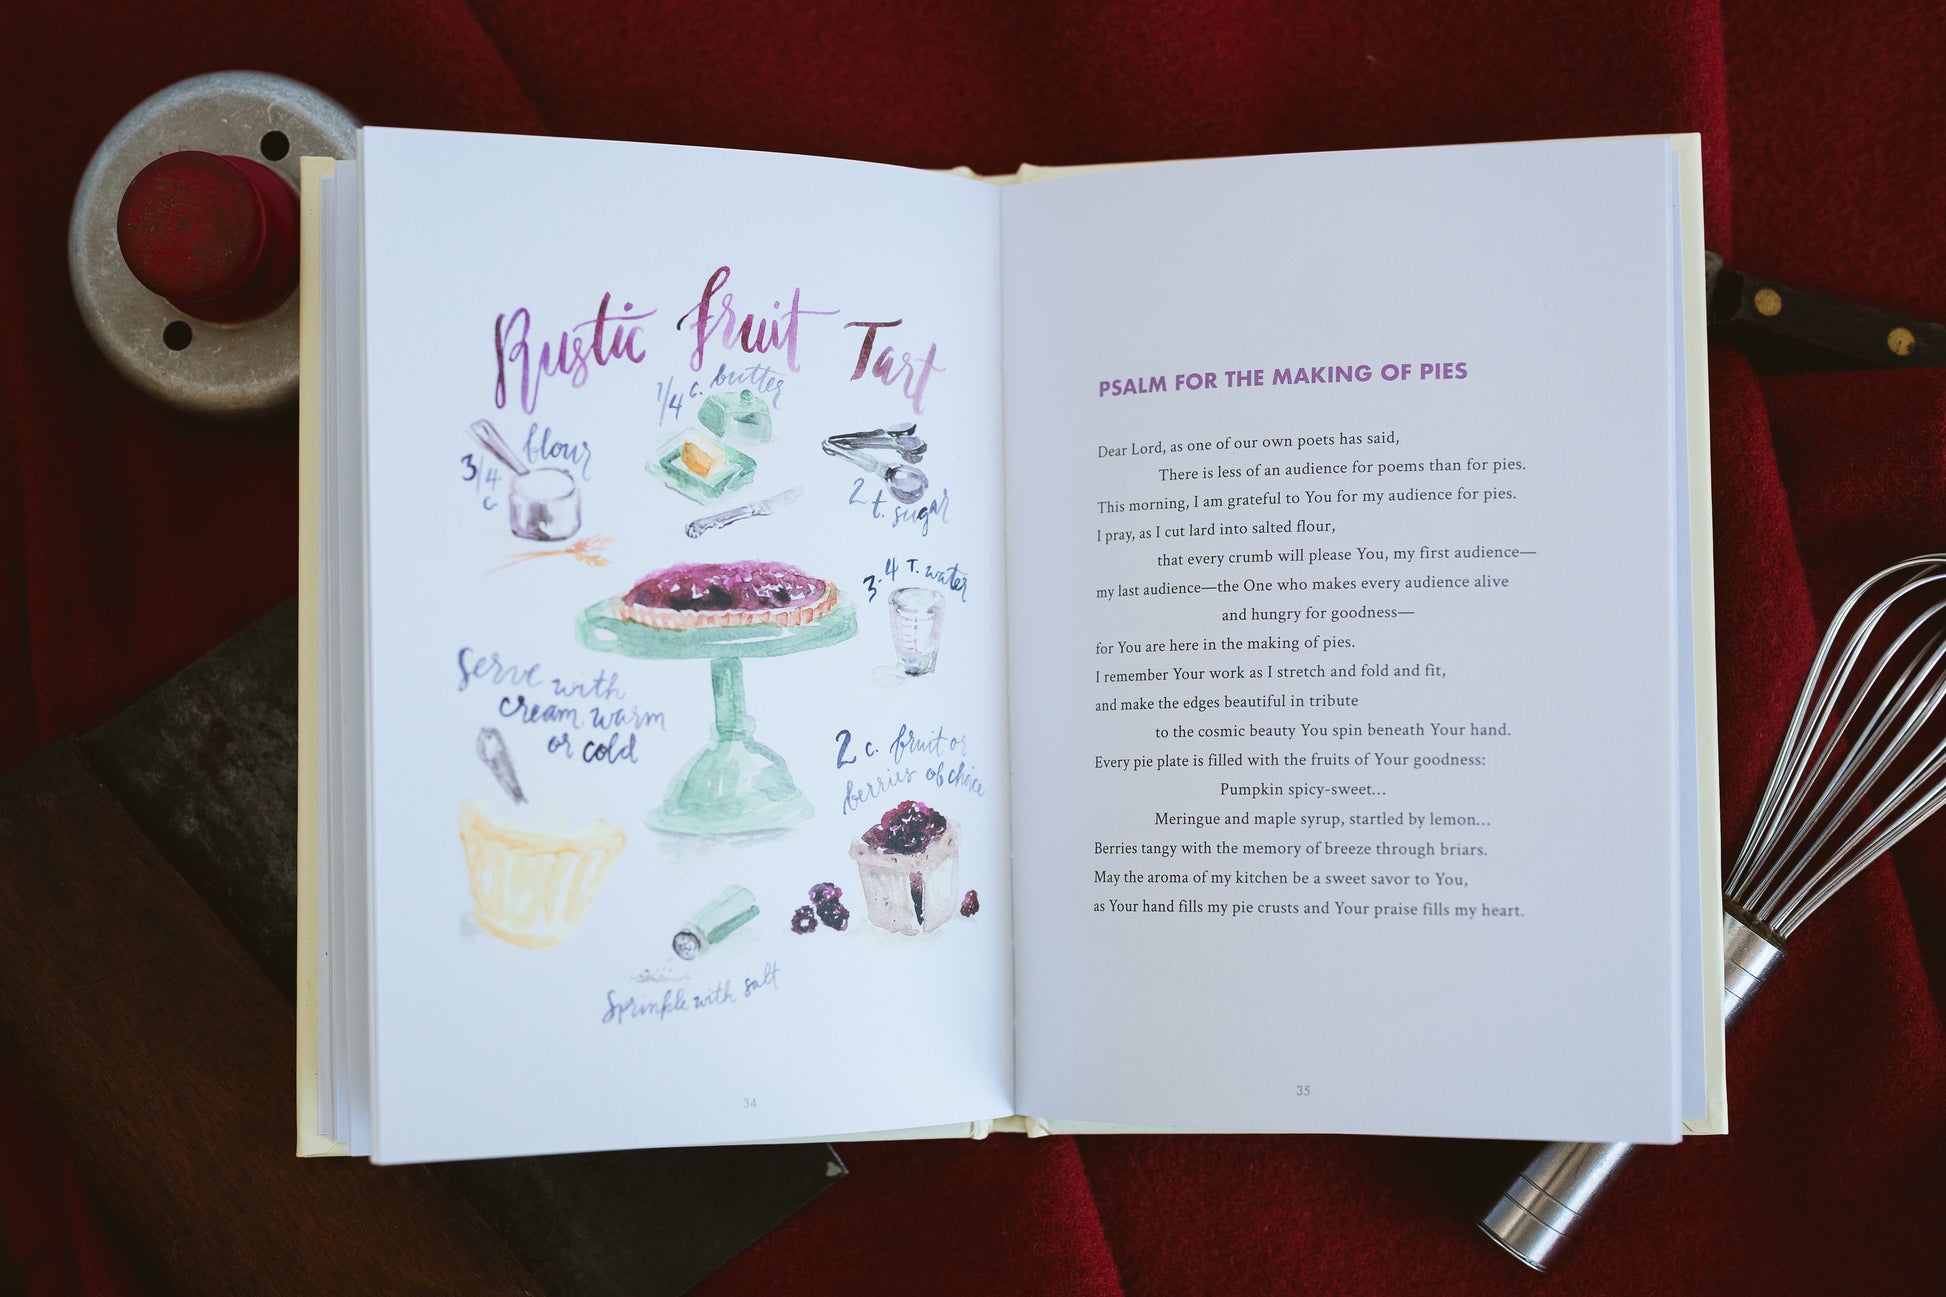 Rustic Fruit Tart
1/4 c. butter
3/4 c flour
2 t. sugar
3-4 T. water
serve with
cream. warm
or cold
2 c. fruit or
berries of choice
sprinkle with salt
34
PSALM FOR THE MAKING OF PIES
Dear Lord, as one of our own poets has said,
There is less of an audience for poems than for pies.
This morning, I am grateful to You for my audience for pies.
I pray, as I cut lard into salted flour,
that every crumb will please You, my first audience—
my last audience—the One who makes every audience alive
and hungry for goodness—
for You are here in the making of pies.
I remember Your work as I stretch and fold and fit,
and make the edges beautiful in tribute
to the cosmic beauty You spin beneath Your hand.
Every pie plate is filled with the fruits of Your goodness:
Pumpkin spicy-sweet...
Meringue and maple syrup, startled by lemon...
Berries tangy with the memory of breeze through briars.
May the aroma of my kitchen be a sweet savor to You,
as Your hand fills my pie crusts and Your praise fills my heart.
35